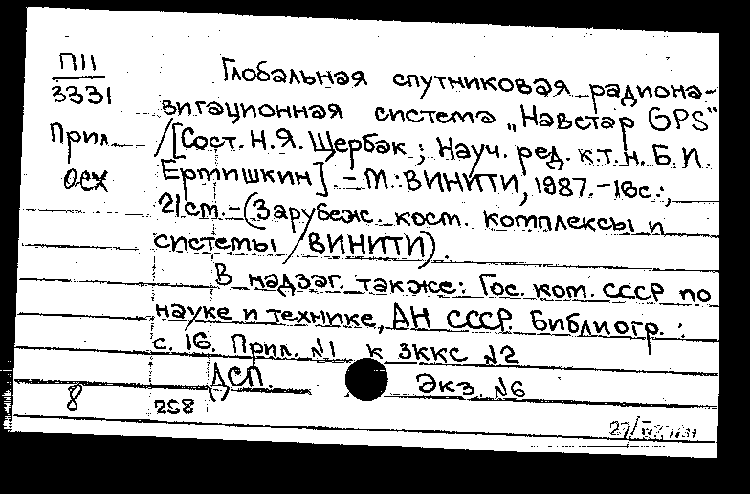 П11
3331
Прил.
ОСХ
Глобальная спутниковая радиона-
вигационная система „Навстар GPS“
/[Сост. Н.Я. Щербак ; Науч. ред. к.т.н. Б.И.
Ертишкин]. – М.: ВИНИТИ, 1987.-16с.:,
21см.-(Зарубеж. косм. комплексы и
системы /ВИНИТИ).
В надзаг. также: Гос. ком. СССР по
науке и технике, АН СССР. Библиогр. :
с. 16. Прил. №1 к ЗККС №2
ДСП. Экз. №6
8 258